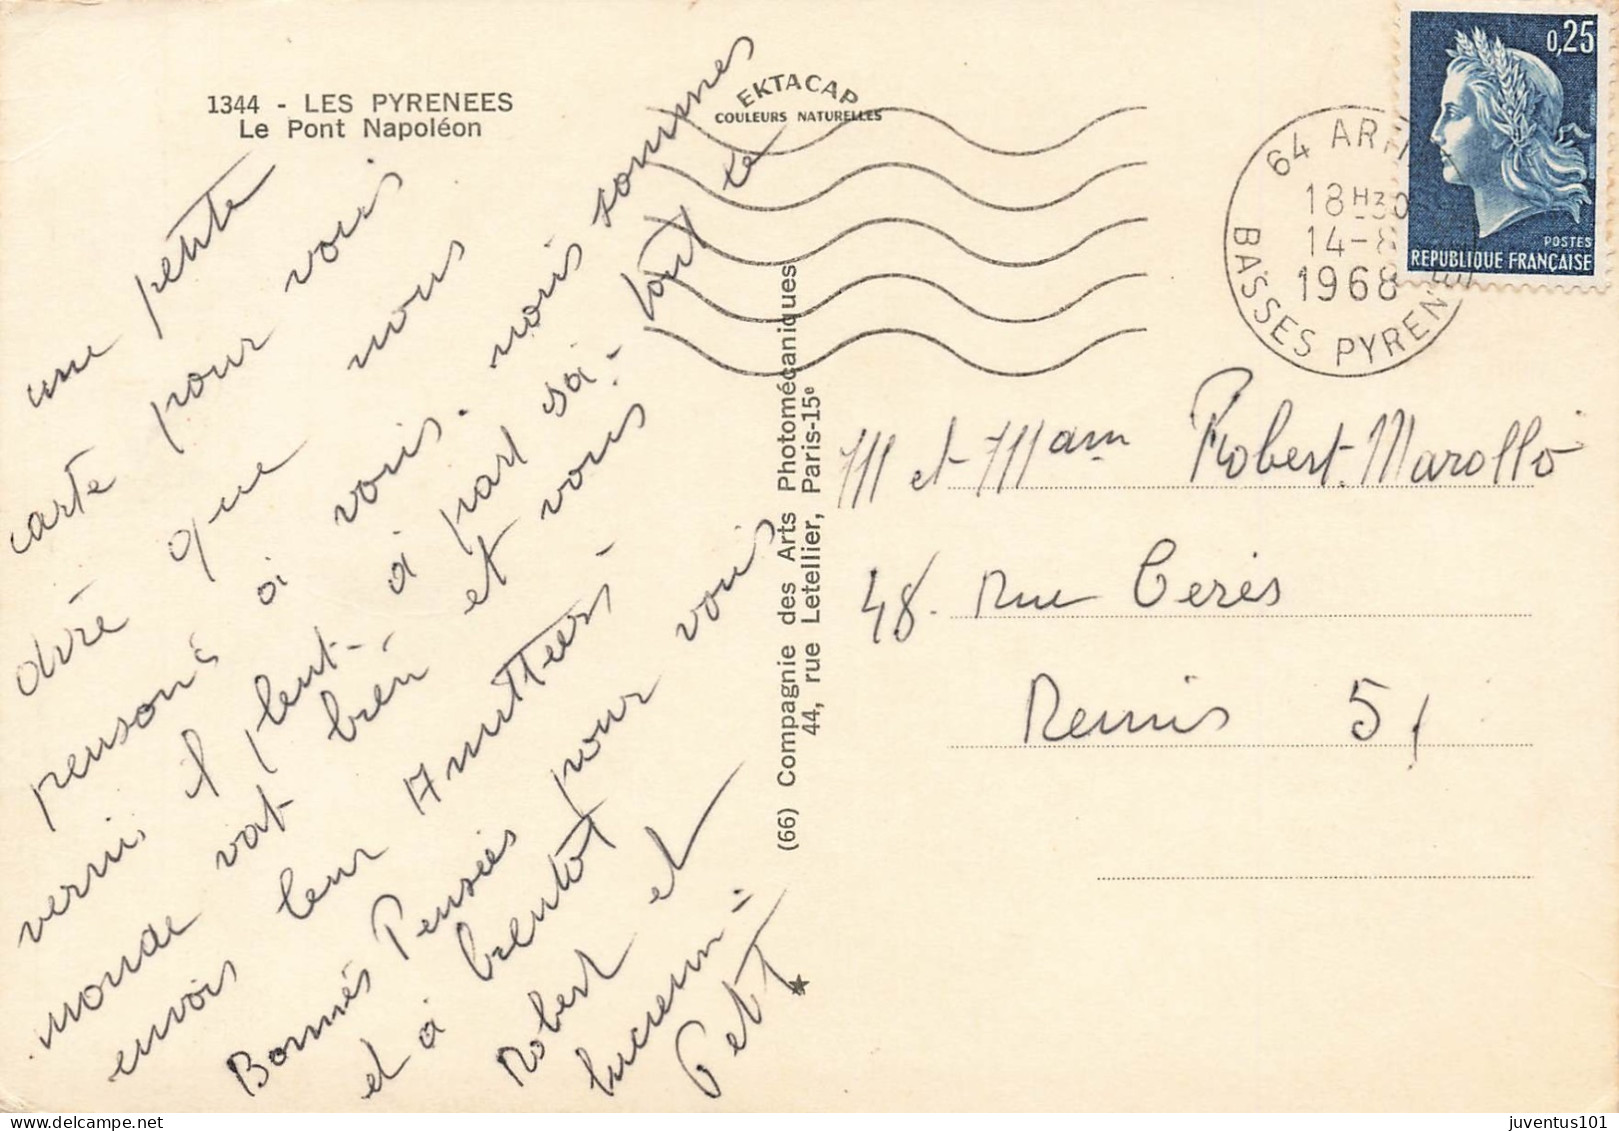 1344 - LES PYRENEES
Le Pont Napoléon
EKTACAP
COULEURS NATURELLES
0,25
POSTES
REPUBLIQUE FRANÇAISE
64 AR
18 H 30
14-8
1968
BASSES PYRENEES
une petite
carte pour vous
diré que nous
pensons à vous. nous sommes
verni il pleut - à part sa - tout le
monde vat bien et vous
envois leur Amitiers -
Bonnés Pensées pour vous
et à bientot
Robert et
Lucienn =
Petit
(66) Compagnie des Arts Photomécaniques
44, rue Letellier, Paris-15e
M et Mam Robert. Marollo
48. Rue Cerès
Reims 51
juventus101